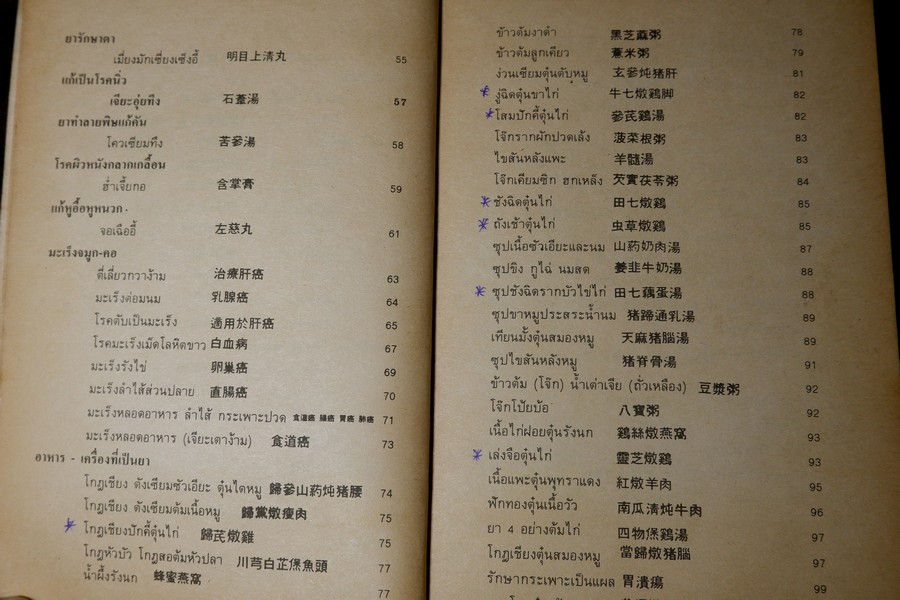 ยารักษาตา
เมี่ยงมักเซี่ยงเซ็งอี้ 明目上清丸 55
แก้เป็นโรคนิ่ว
เจียะอุ่ยทึง 石葦湯 57
ยาทำลายพิษแก้คัน
โควเซียมทึง 苦參湯 58
โรคผิวหนังกลากเกลื้อน
ฮ่ำเจี้ยกอ 含掌膏 59
แก้หูอื้อหูหนวก
จอเฉืออี้ 左慈丸 61
มะเร็งจมูก-คอ
ตี่เลี่ยวกวาง้าม 治療肝癌 63
มะเร็งต่อมนม 乳腺癌 64
โรคตับเป็นมะเร็ง 適用於肝癌 65
โรคมะเร็งเม็ดโลหิตขาว 白血病 67
มะเร็งรังไข่ 卵巢癌 69
มะเร็งลำไส้ส่วนปลาย 直腸癌 70
มะเร็งหลอดอาหาร ลำไส้ กระเพาะปวด 食道癌 腸癌 胃癌 肺癌 71
มะเร็งหลอดอาหาร (เจียะเตาง้าม) 食道癌 73
อาหาร - เครื่องที่เป็นยา
โกฎเชียง ตังเซียมซัวเอียะ ตุ๋นไตหมู 歸參山葯炖猪腰 74
โกฎเชียง ตังเซียมต้มเนื้อหมู 歸黨燉瘦肉 75
โกฎเชียงปักคี้ตุ๋นไก่ 歸芪燉雞 75
โกฎหัวบัว โกฎสอต้มหัวปลา 川芎白芷煲魚頭 77
น้ำผึ้งรังนก 蜂蜜燕窩 77
ข้าวต้มงาดำ 黑芝蔴粥 78
ข้าวต้มลูกเดียว 薏米粥 79
ง่วนเซียมตุ๋นตับหมู 玄參炖猪肝 81
งู่ฉิดตุ๋นขาไก่ 牛七燉鷄脚 82
โสมปักคี้ตุ๋นไก่ 參芪鷄湯 82
โจ๊กรากผักปวดเล้ง 菠菜根粥 83
ไขสันหลังแพะ 羊髓湯 83
โจ๊กเคียมซิก ฮกเหล็ง 芡實茯苓粥 84
ซังฉิดตุ๋นไก่ 田七燉鷄 85
ถังเช้าตุ๋นไก่ 虫草燉鷄 85
ซุปเนื้อซัวเอียะและนม 山葯奶肉湯 87
ซุปขิง กูไฉ่ นมสด 姜韭牛奶湯 88
ซุปซังฉิดรากบัวไข่ไก่ 田七藕蛋湯 88
ซุปขาหมูประสระน้ำนม 猪蹄通乳湯 89
เทียนมั้งตุ๋นสมองหมู 天麻猪腦湯 89
ซุปไขสันหลังหมู 猪脊骨湯 91
ข้าวต้ม (โจ๊ก) น้ำเต่าเจีย (ถั่วเหลือง) 豆漿粥 92
โจ๊กโป้ยบ้อ 八寶粥 92
เนื้อไก่ฝอยตุ๋นรังนก 鷄絲燉燕窩 93
เล่งจือตุ๋นไก่ 靈芝燉鷄 93
เนื้อแพะตุ๋นพุทราแดง 紅燉羊肉 95
ฟักทองตุ๋นเนื้อวัว 南瓜清炖牛肉 96
ยา 4 อย่างต้มไก่ 四物煲鷄湯 97
โกฎเชียงตุ๋นสมองหมู 當歸燉猪腦 97
รักษากระเพาะเป็นแผล 胃潰瘍 99